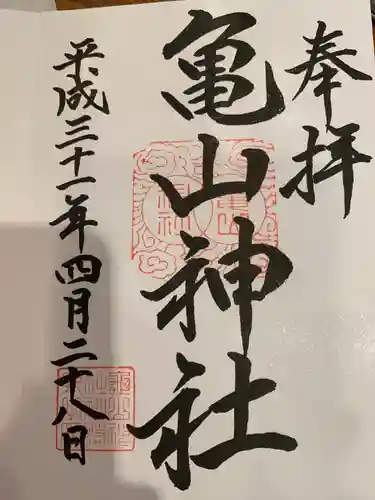 奉拝
亀山神社
平成三十一年四月二十八日